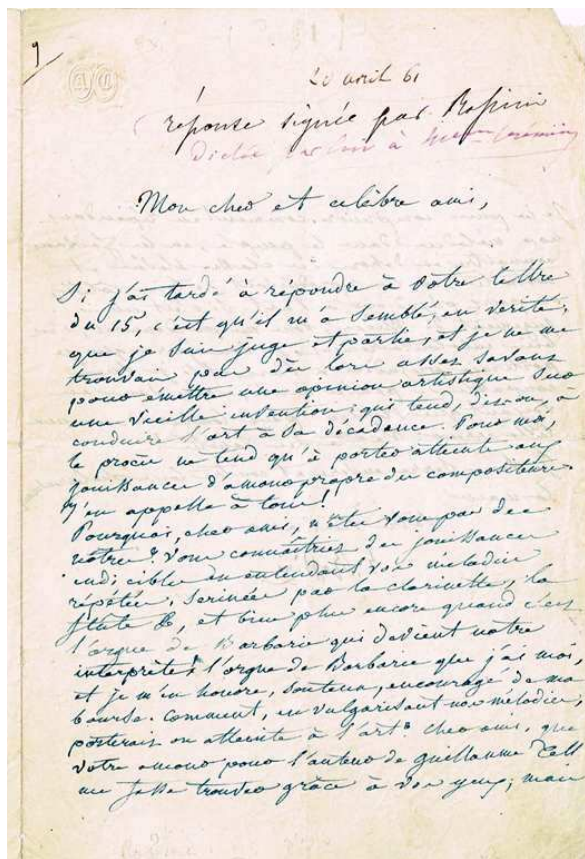 9
20 avril 61
réponse signée par Rossini
Dictée par lui à
Mon cher et célèbre ami,
Si j'ai tardé à répondre à votre lettre
du 15, c'est qu'il m'a semblé, en vérité,
que je suis juge et partie, et je ne me
trouvais pas dès lors assez savant
pour émettre une opinion artistique sur
une vieille invention qui tend, dis-on, à
conduire l'art à sa décadence. Pour moi,
le procès ne tend qu'à porter atteinte aux
jouissances d'amour propre des compositeurs
J'en appelle à tous!
Pourquoi, cher ami, n'êtes vous pas des
nôtres? Vous connaîtriez des jouissances
indicibles en entendant vos mélodies
répétées, serinées par la clarinette, la
flûte &, et bien plus encore quand c'est
l'orgue de Barbarie qui devient notre
interprète! l'orgue de Barbarie que j'ai moi,
et je m'en honore, soutenu, encouragé de ma
bourse. Comment, en vulgarisant nos mélodies,
porterais on atteinte à l'art? cher ami, que
votre amour pour l'auteur de Guillaume Tell
me fasse trouver grâce à vos yeux; mais